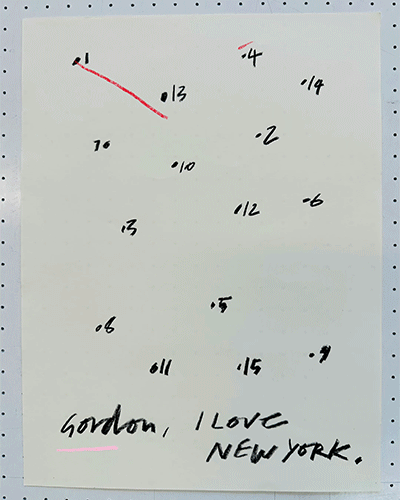 1
4
13
14
2
7
10
6
12
3
5
8
9
11
15
Gordon, I LOVE
NEW YORK.